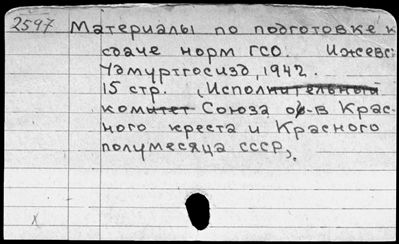 2597 Материалы по подготовке к
сдаче норм ГСО. Ижевс
Удмуртгосизд, 1942.
15 стр. (Исполнительный
комитет Союза об-в Крас-
ного креста и Красного
полумесяца СССР),
x